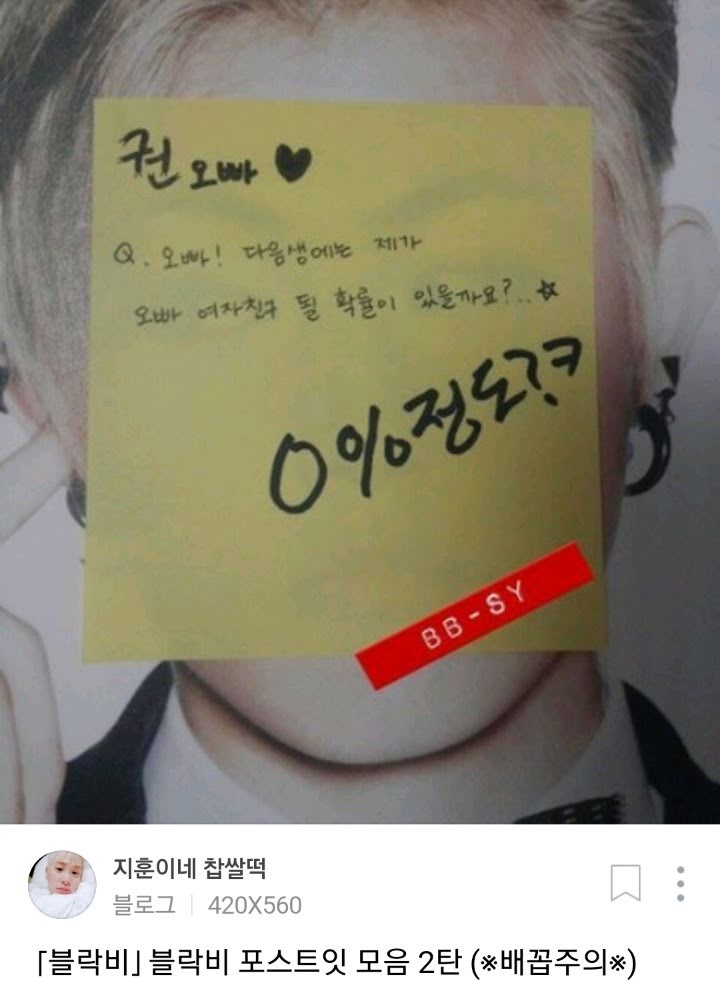 권오빠 ♥
Q. 오빠! 다음생에는 제가
오빠 여자친구 될 확률이 있을까요?..☆
0%정도?ㅋ
BB-SY
지훈이네 찹쌀떡
블로그 | 420X560
「블락비」 블락비 포스트잇 모음 2탄 (※배꼽주의※)